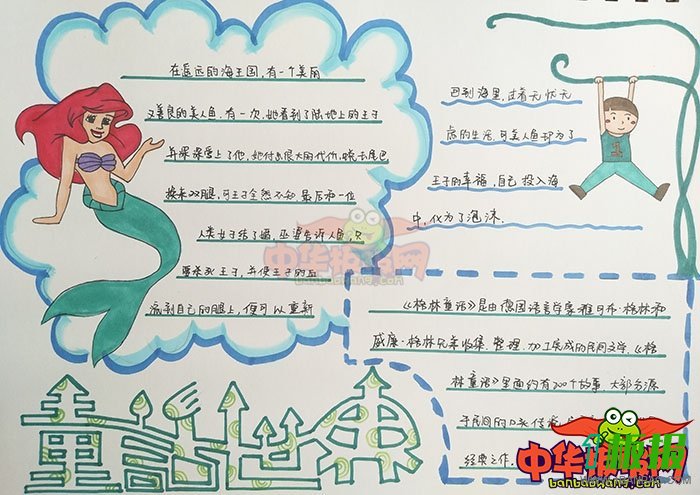 在遥远的海王国，有一个美丽
又善良的美人鱼．有一次，她看到了陆地上的王子
并深深爱上了他，她付出很大的代价，脱去尾巴
换来双腿，可王子全然不知 最后和一位
人类女子结了婚，巫婆告诉人鱼，只
要杀死王子，并使王子的血
流到自己的腿上，便可以重新
回到海里，过着无忧无
虑的生活，可美人鱼却为了
王子的幸福，自己投入海
中，化为了泡沫．
《格林童话》是由德国语言学家雅可布·格林和
威廉·格林兄弟收集、整理、加工完成的民间文学，《格
林童话》里面约有200个故事 大部分源
于民间的口头传说，
经典之作．
童话世界
中华板报网
banbaowang.com
趣报